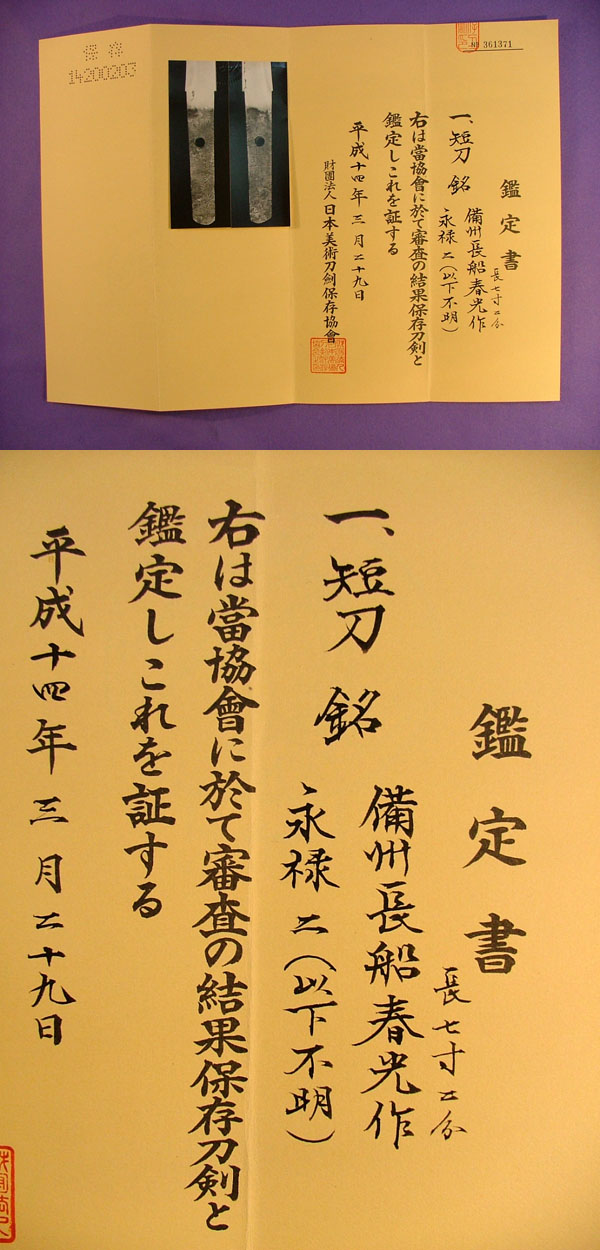 保存
14200203
No 361371
鑑定書
一、短刀 銘 備州長船春光作 長七寸二分
永禄二(以下不明)
右は當協會に於て審査の結果保存刀剣と
鑑定しこれを証する
平成十四年三月二十九日
財團法人日本美術刀剣保存協會
鑑定書
一、短刀 銘 備州長船春光作 長七寸二分
永禄二(以下不明)
右は當協會に於て審査の結果保存刀剣と
鑑定しこれを証する
平成十四年三月二十九日